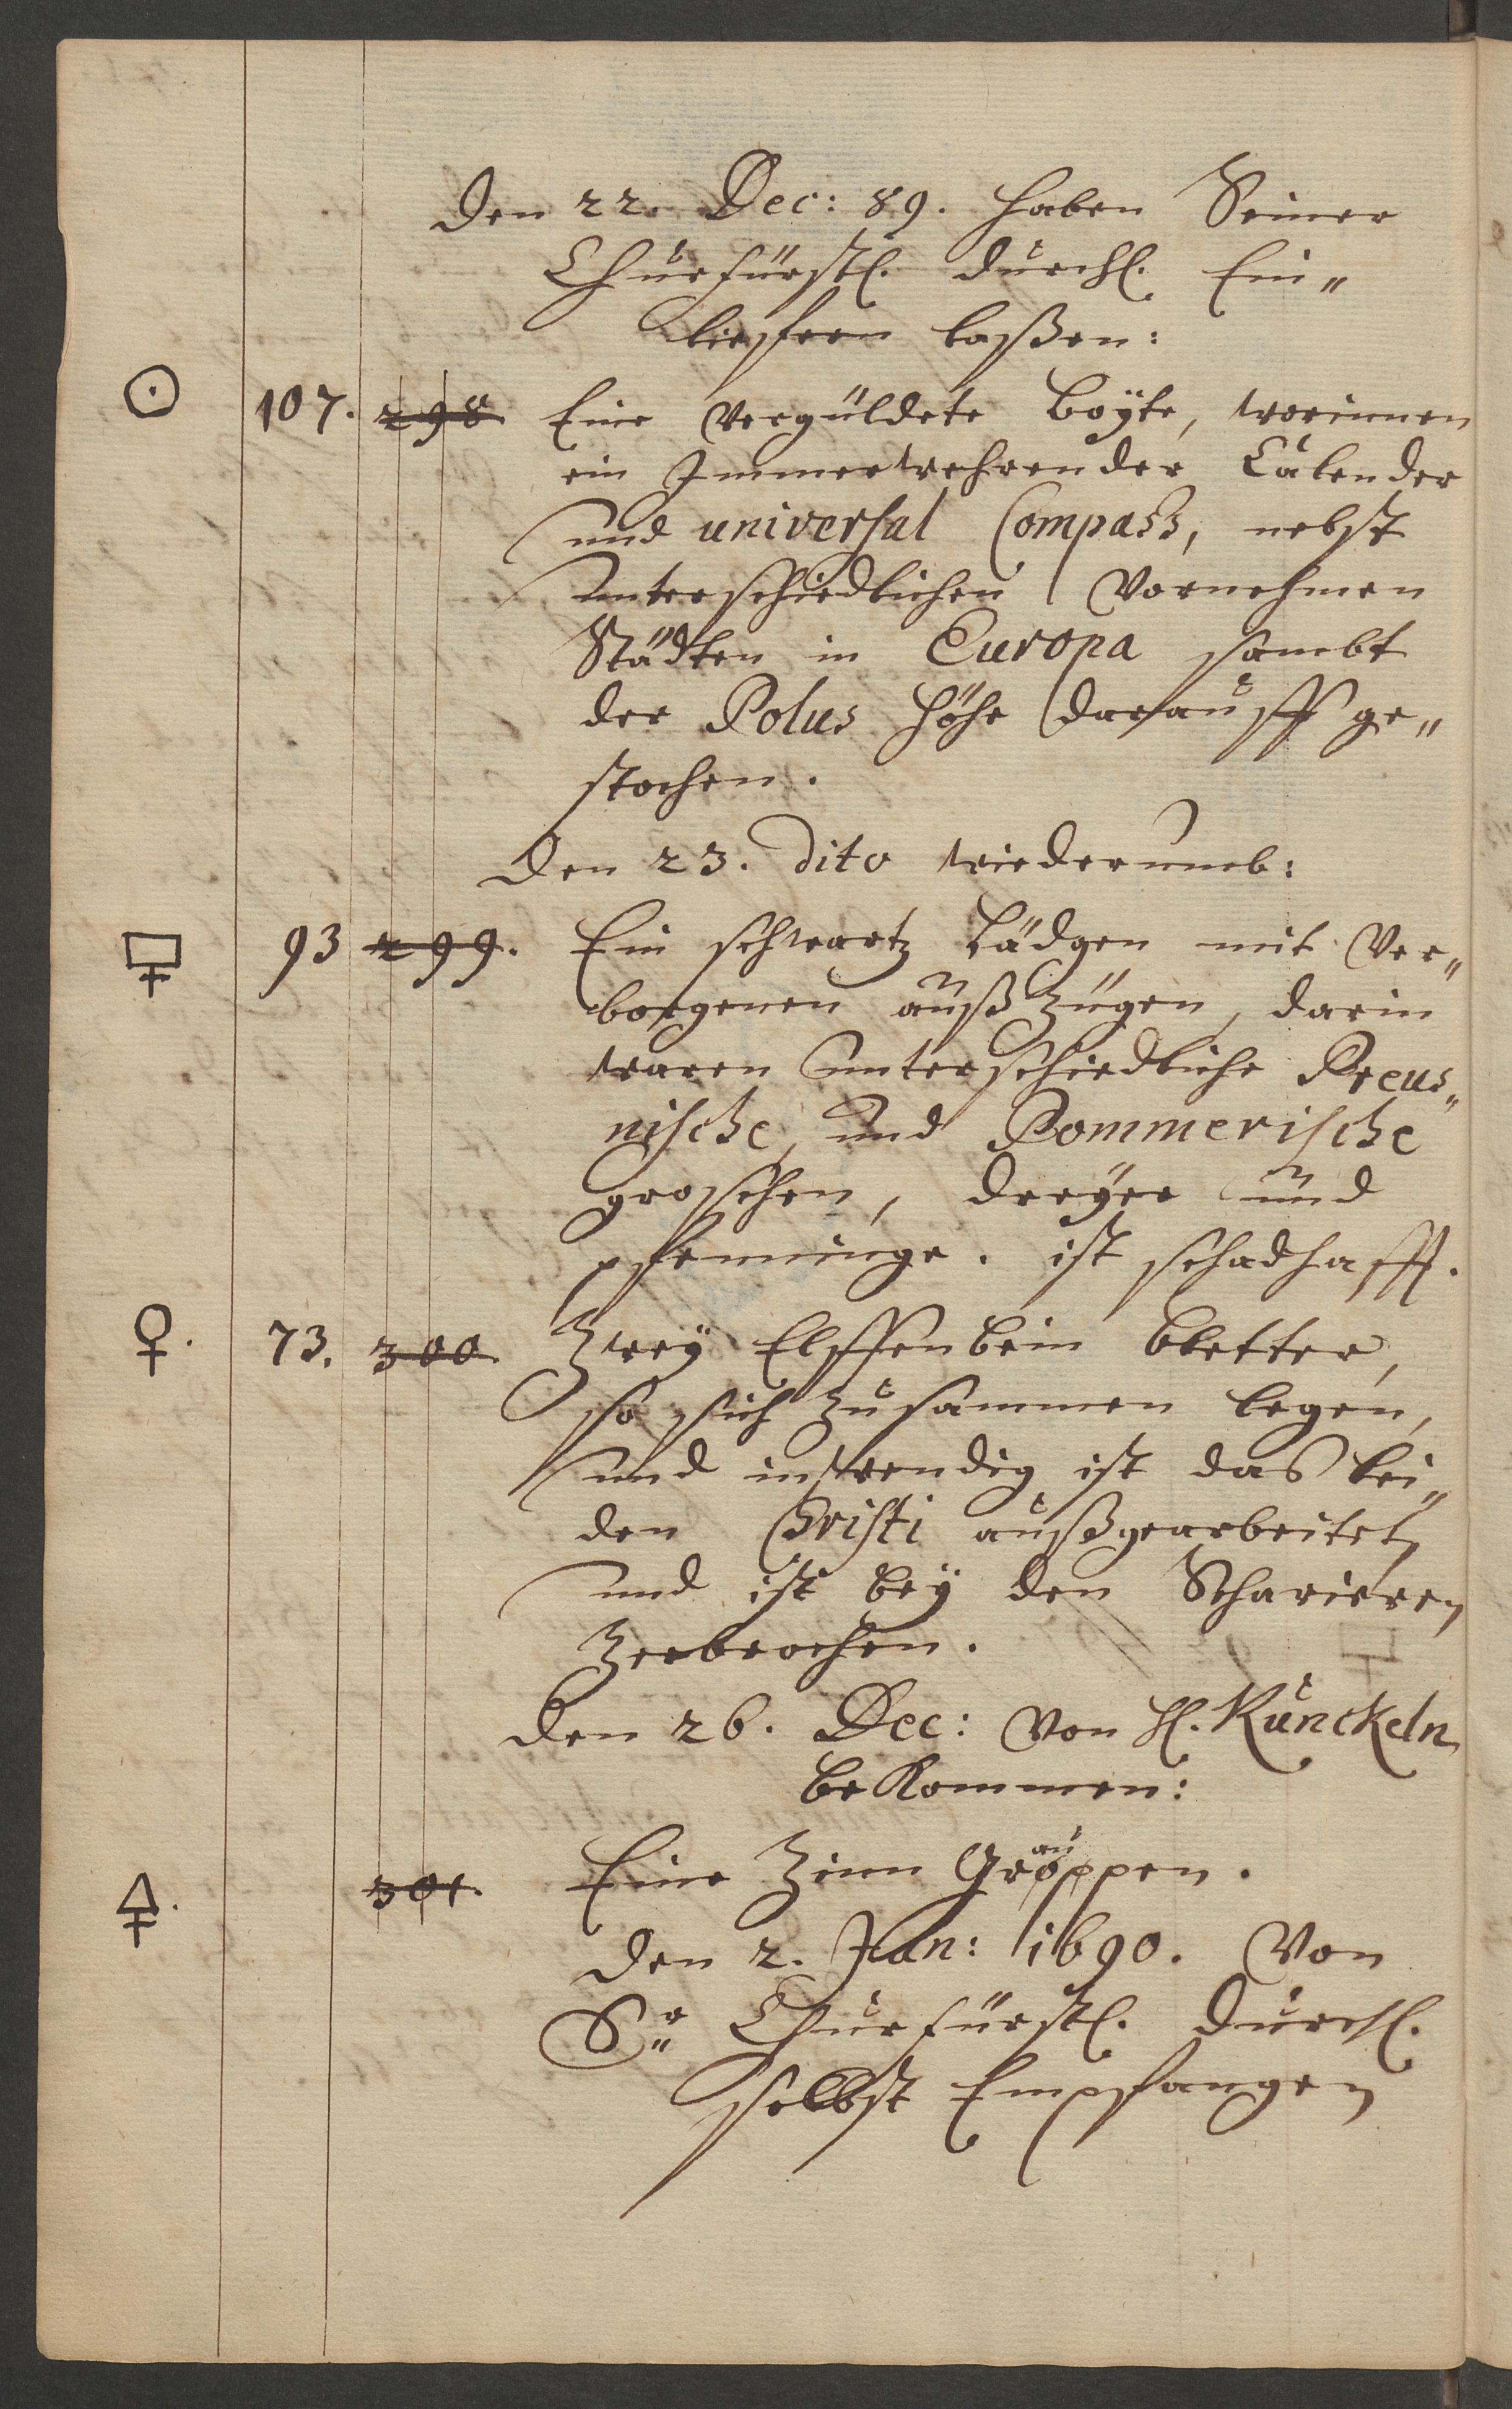 Den 22. Dec: 89. haben Seiner
Churfürstl. Durchl. Ein„
lieffern laßen:
☉ 107. 298 Eine vergüldete boÿte, worinnen
ein Immerwehrender Calender
und universal Compass, nebst
unterschiedlichen Vornehmen
Städten in Europa sambt
der Polus Höhe darauff ge„
stochen.
Den 23. dito wiederumb:
93 299. Ein schwartz Lädgen mit Ver„
borgenen außzügen, darin
waren unterschiedliche Preus„
nische, und Pommerische
groschen, dreÿer und
pfenninge. ist schadhafft.
♀. 73. 300 Zweÿ Elffenbein bletter,
so sich zusammen legen,
und inwendig ist das lei„
den Christi außgearbeitet,
und ist beÿ den Scharieren
Zerbrochen.
Den 26. Dec: Von H. Kunckeln
bekommen:
301. Eine Zinn Gröppen.
au
Den 2. Jan: 1690. Von
Sr. Churfürstl. Durchl.
selbst Empfangen